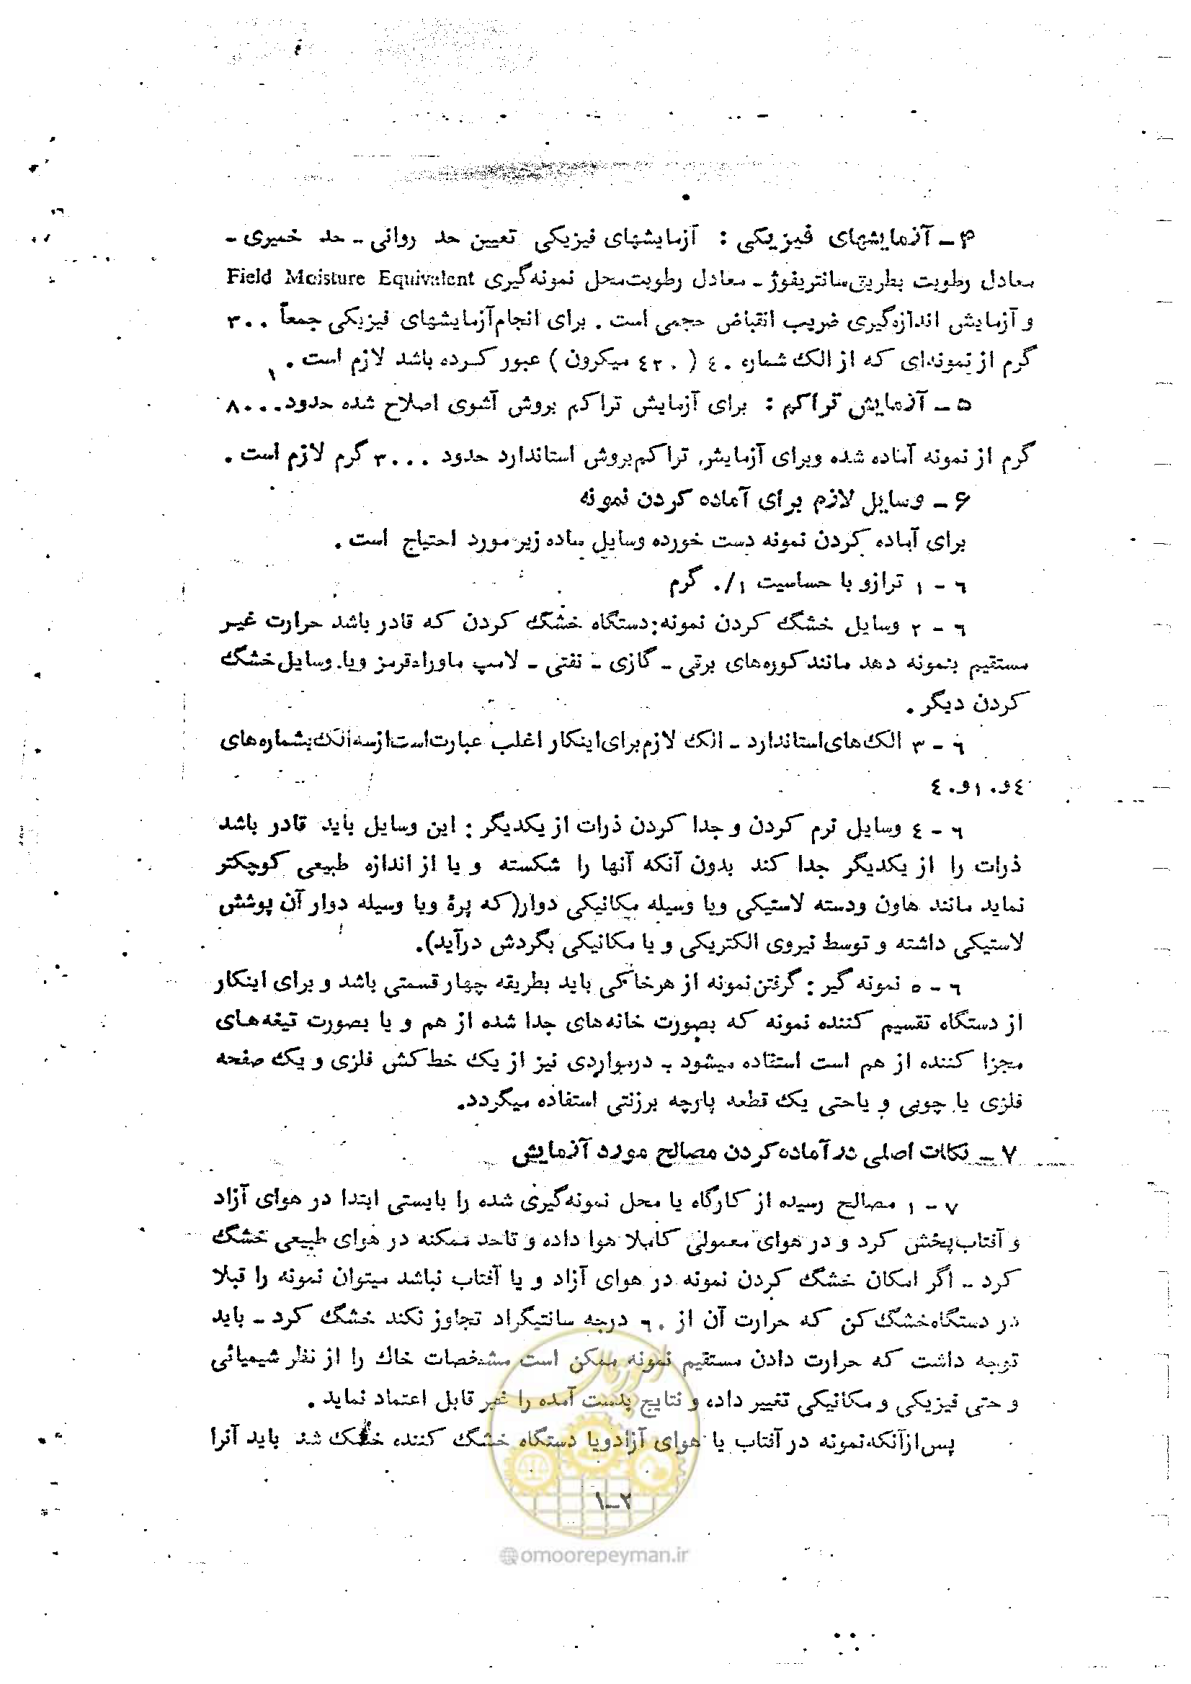 ۴ ــ آزمایشهای فیزیکی : آزمایشهای فیزیکی تعیین حد روانی ـ حد خمیری ـ
معادل رطوبت بطریق سانتریفوژ ـ معادل رطوبت محل نمونه‌گیری Field Moisture Equivalent
و آزمایش اندازه‌گیری ضریب انقباض حجمی است . برای انجام آزمایشهای فیزیکی جمعاً ۳۰۰
گرم از نمونه‌ای که از الک شماره ۴۰ ( ۴۲۰ میکرون ) عبور کرده باشد لازم است .
۵ ــ آزمایش تراکم : برای آزمایش تراکم بروش آشوی اصلاح شده حدود ۸۰۰۰
گرم از نمونه آماده شده وبرای آزمایش تراکم بروش استاندارد حدود ۳۰۰۰ گرم لازم است .
۶ ــ وسایل لازم برای آماده کردن نمونه
برای آماده کردن نمونه دست خورده وسایل ساده زیر مورد احتیاج است .
۶ - ۱ ترازو با حساسیت ۰/۱ گرم
۶ - ۲ وسایل خشگ کردن نمونه: دستگاه خشگ کردن که قادر باشد حرارت غیر
مستقیم بنمونه دهد مانند کوره‌های برقی ـ گازی ـ نفتی ـ لامپ ماوراءقرمز ویا وسایل خشگ
کردن دیگر .
۶ - ۳ الک‌های استاندارد ـ الک لازم برای اینکار اغلب عبارت است از سه الک بشماره‌های
۴ و ۱۰ و ۴۰
۶ - ۴ وسایل نرم کردن و جدا کردن ذرات از یکدیگر : این وسایل باید قادر باشد
ذرات را از یکدیگر جدا کند بدون آنکه آنها را شکسته و یا از اندازه طبیعی کوچکتر
نماید مانند هاون ودسته لاستیکی ویا وسیله مکانیکی دوار(که پرۀ ویا وسیله دوار آن پوشش
لاستیکی داشته و توسط نیروی الکتریکی و یا مکانیکی بگردش درآید).
۶ - ۵ نمونه گیر : گرفتن نمونه از هرخاکی باید بطریقه چهار قسمتی باشد و برای اینکار
از دستگاه تقسیم کننده نمونه که بصورت خانه‌های جدا شده از هم و یا بصورت تیغه‌های
مجزا کننده از هم است استفاده میشود ـ درمواردی نیز از یک خط‌کش فلزی و یک صفحه
فلزی یا چوبی و یاحتی یک قطعه پارچه برزنتی استفاده میگردد.
۷ ــ نکات اصلی در آماده کردن مصالح مورد آزمایش
۷ - ۱ مصالح رسیده از کارگاه یا محل نمونه‌گیری شده را بایستی ابتدا در هوای آزاد
و آفتاب پخش کرد و در هوای معمولی کاملا هوا داده و تاحد ممکنه در هوای طبیعی خشگ
کرد ـ اگر امکان خشگ کردن نمونه در هوای آزاد و یا آفتاب نباشد میتوان نمونه را قبلا
در دستگاه خشگ کن که حرارت آن از ۶۰ درجه سانتیگراد تجاوز نکند خشگ کرد ـ باید
توجه داشت که حرارت دادن مستقیم نمونه ممکن است مشخصات خاك را از نظر شیمیائی
و حتی فیزیکی و مکانیکی تغییر داده و نتایج بدست آمده را غیر قابل اعتماد نماید .
پس ازآنکه نمونه در آفتاب یا هوای آزادویا دستگاه خشگ کننده خشک شد باید آنرا
۱ـ۲
@omoorepeyman.ir